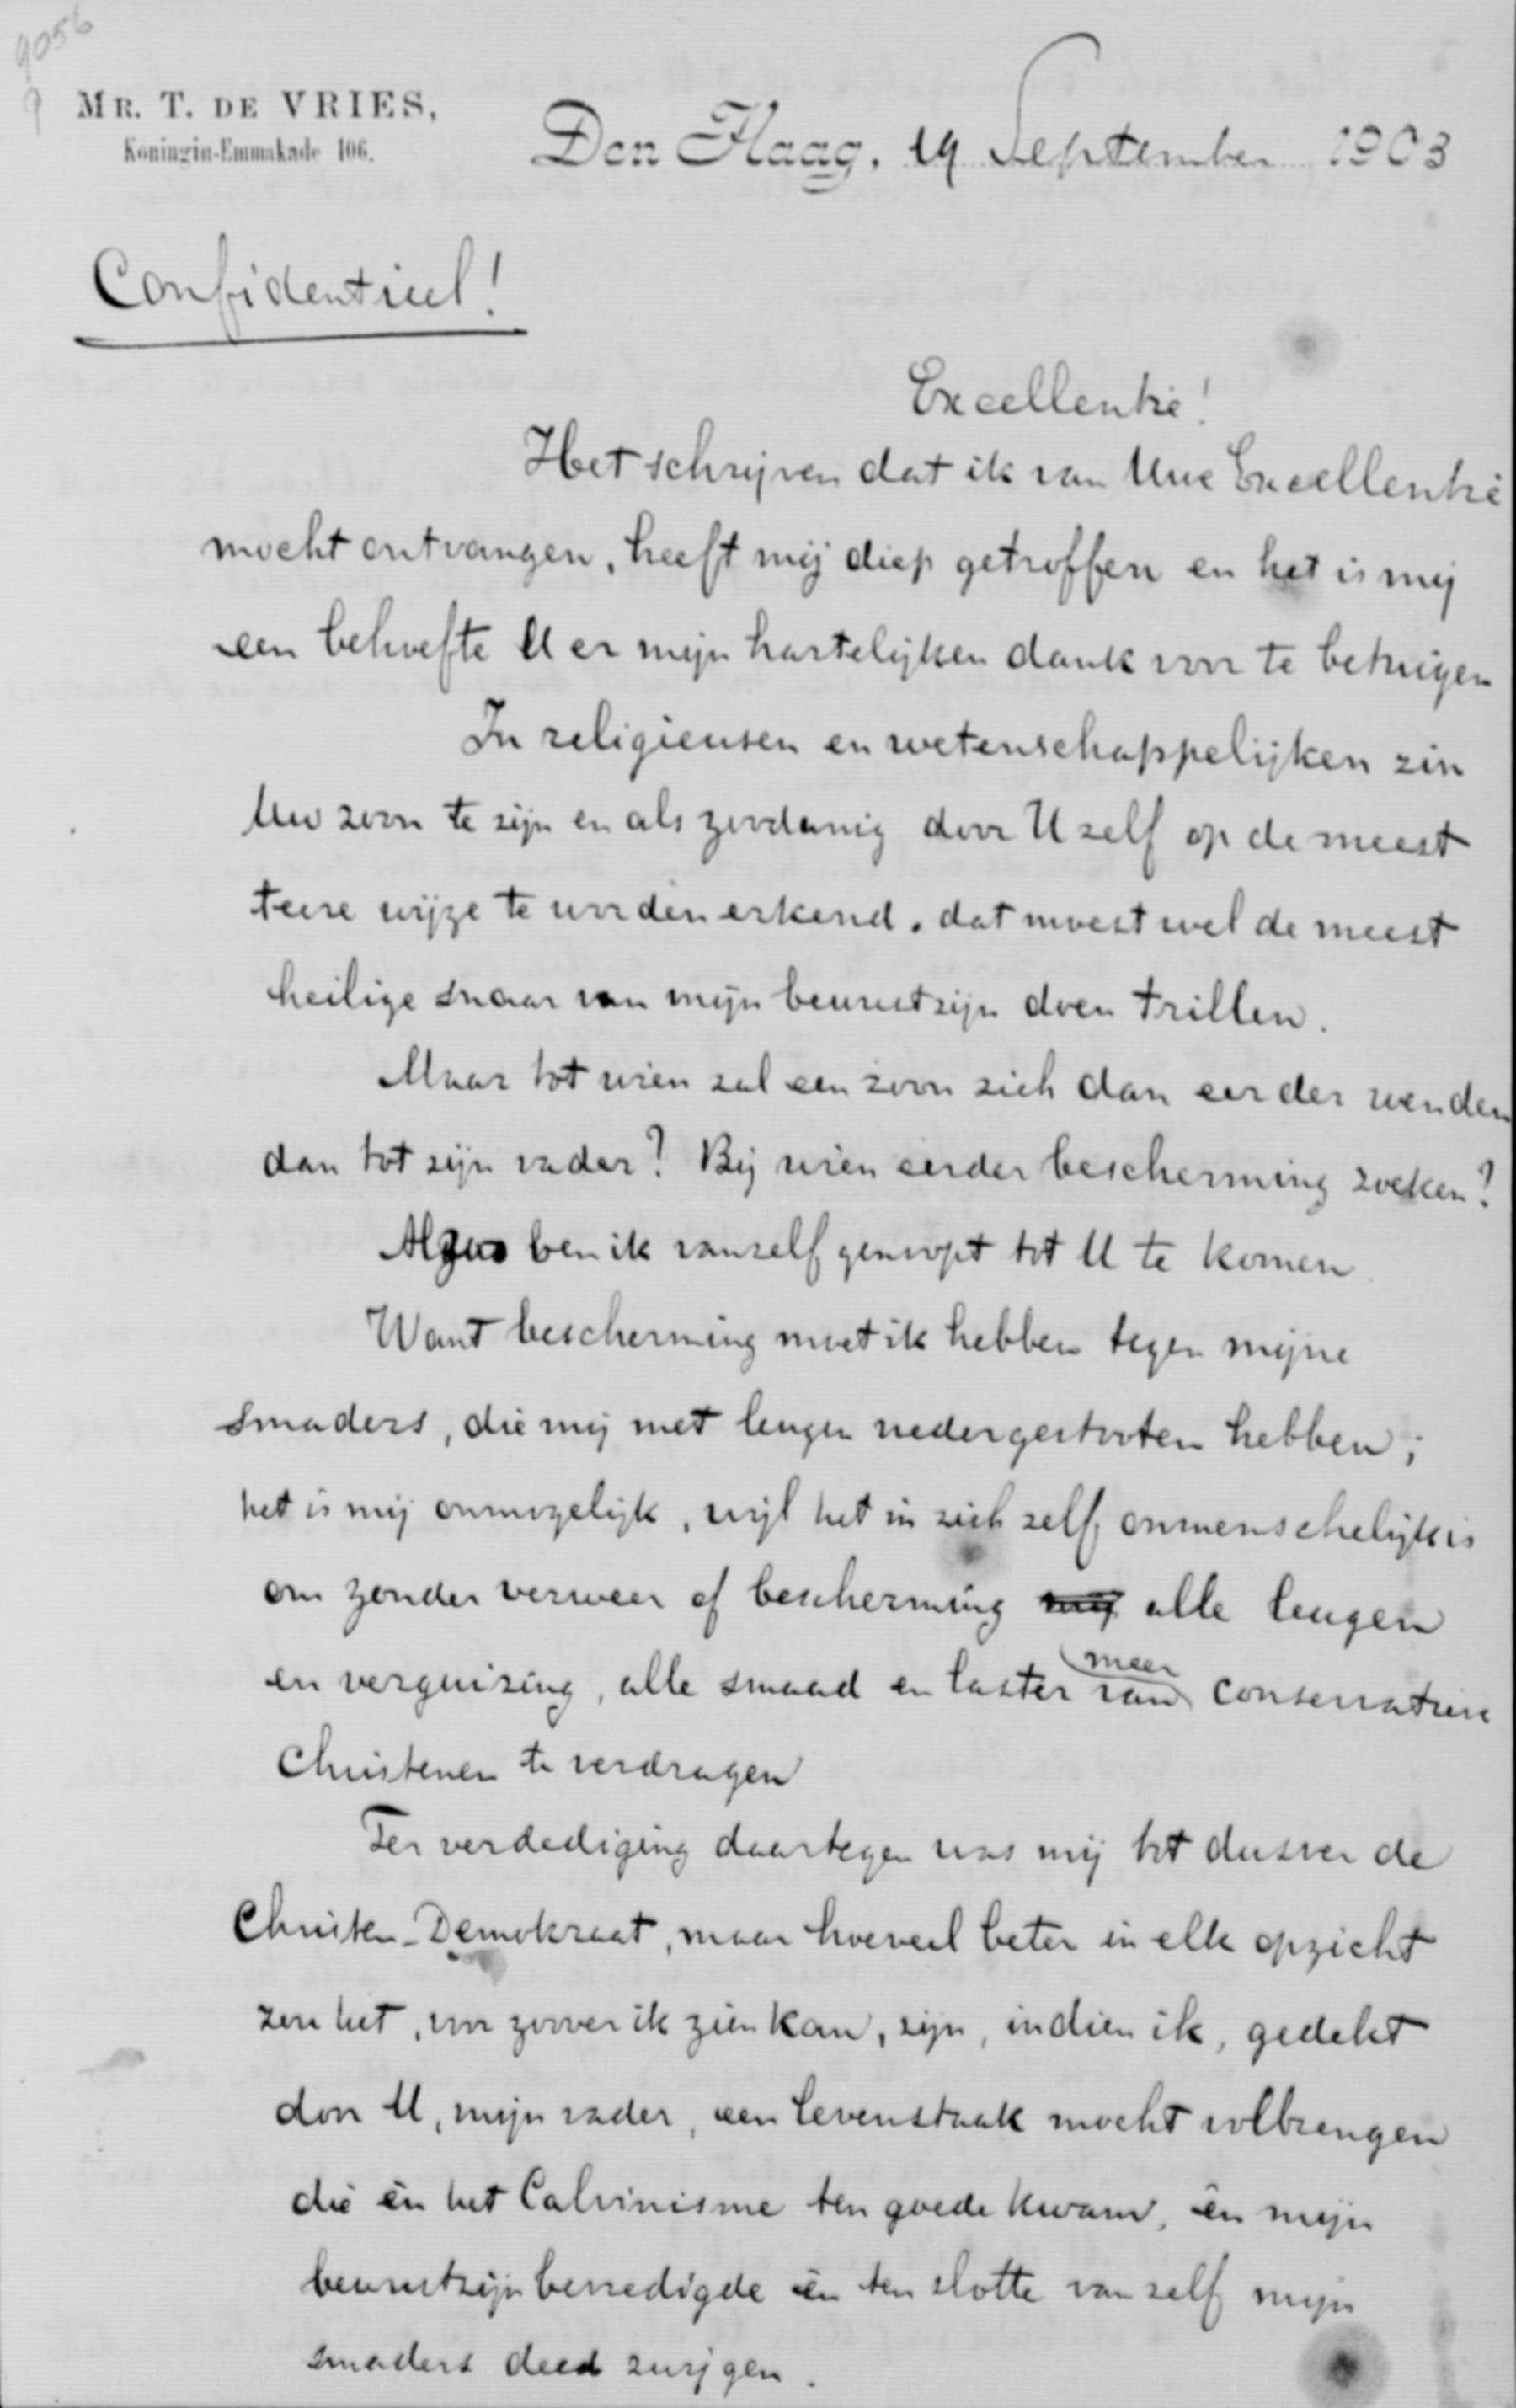 9056
MR. T. DE VRIES,
Koningin-Emmakade 106.
Den Haag, 19 September 1903
Confidentieel!
Excellentie!
Het schrijven dat ik van Uwe Excellentie
mocht ontvangen, heeft mij diep getroffen en het is mij
een behoefte U er mijn hartelijken dank voor te betuigen
In religieusen en wetenschappelijken zin
Uw zoon te zijn en als zoodanig door U zelf op de meest
teere wijze te worden erkend, dat moest wel de meest
heilige snaar van mijn bewustzijn doen trillen.
Maar tot wien zal een zoon zich dan eerder wenden
dan tot zijn vader? Bij wien eerder bescherming zoeken?
Alzoo ben ik vanzelf genoopt tot U te komen
Want bescherming moet ik hebben tegen mijne
smaders, die mij met leugen nedergestooten hebben;
het is mij onmogelijk, wijl het in zich zelf onmenschelijk is
om zonder verweer of bescherming mij alle leugen
en verguizing, alle smaad en laster van meer conservatieve
Christenen te verdragen
Ter verdediging daartegen was mij tot dusver de
Christen-Demokraat, maar hoeveel beter in elk opzicht
zou het, voor zoover ik zien kan, zijn, indien ik, gedekt
door U, mijn vader, een levenstaak mocht volbrengen
die èn het Calvinisme ten goede kwam, èn mijn
bewustzijn bevredigde èn ten slotte van zelf mijn
smaders deed zwijgen.